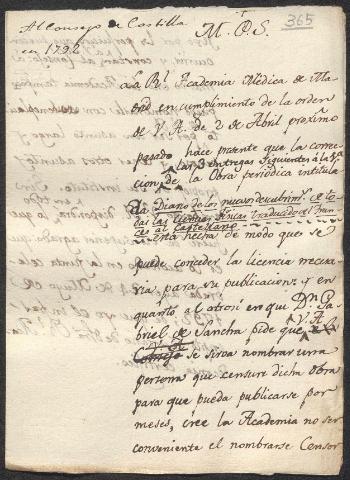 Al Consejo de Castilla
en 1792
M. P. S.
365
La Rl Academia Médica de Ma
drid en cumplimiento de la orden
de V. A. de 2 de Abril próximo
pasado hace presente que la correc
cion de las 3 entregas siguientes à la
la Obra periodica intitula
da Diario de los nuevos descubrim.tos de to
das las Ciencias
traducido del Fran
ces al Castellano
està hecha de modo que se
puede conceder la licencia necesa
ria para su publicacion; y en
quanto al otrosi en que Dn Ga
briel de Sancha pide que V. A.
se sirva nombrar una
persona que censure dicha Obra
para que pueda publicarse por
meses, cree la Academia no ser
conveniente el nombrarse Censor